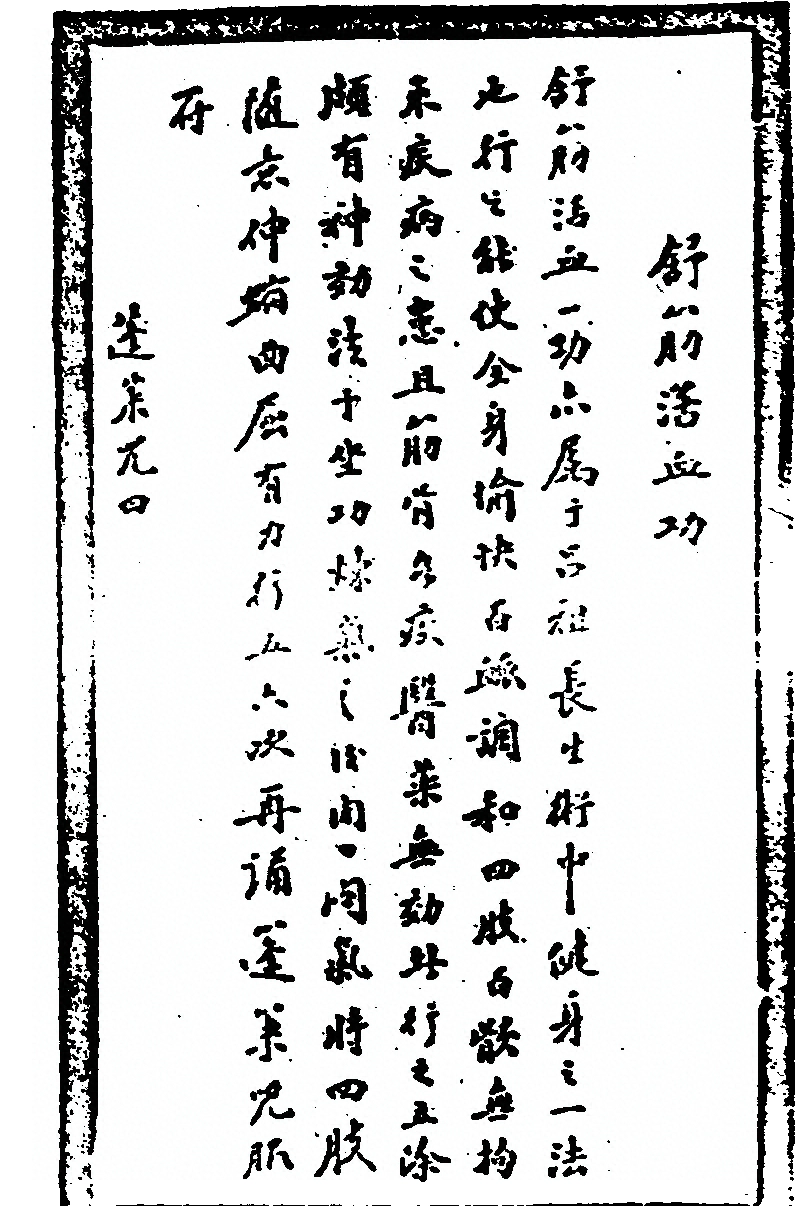 舒筋活血功
舒筋活血一功亦属于吕祖長生術中健身之一法
也行之能使全身愉快百脈調和四肢百骸無拘
束疾病之患且筋骨各疾醫藥無効者行之立除
頗有神効法于坐功煉氣之後闭口闭氣時四肢
随意伸縮曲屈有力行五六次再誦蓬萊咒服
符
蓬萊咒曰